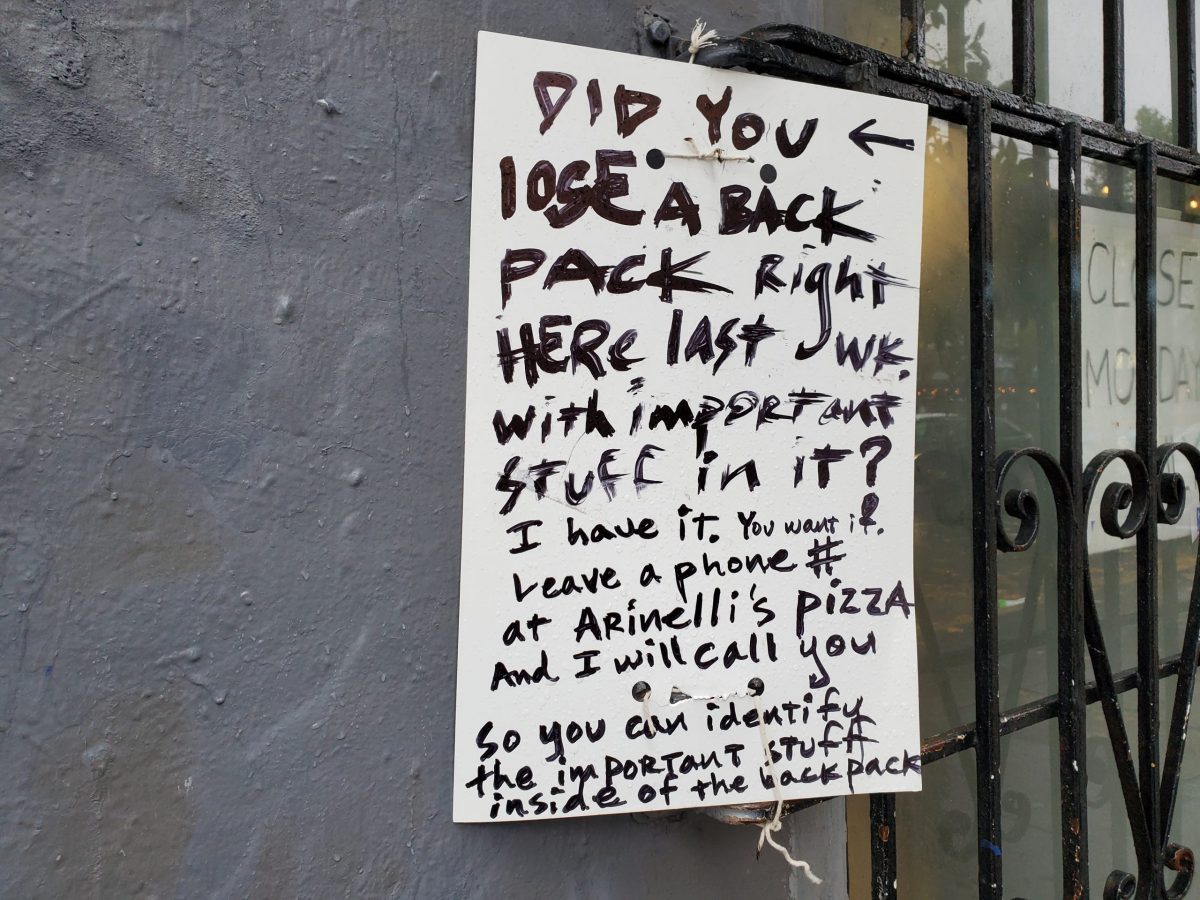 DID YOU ←
LOSE A BACK
PACK Right
HERE last WK.
with important
stuff in it?
I have it. You want it.
Leave a phone #
at Arinelli's pizza
And I will call you
So you can identify
the important stuff
inside of the backpack
CLOSE
MONDAY